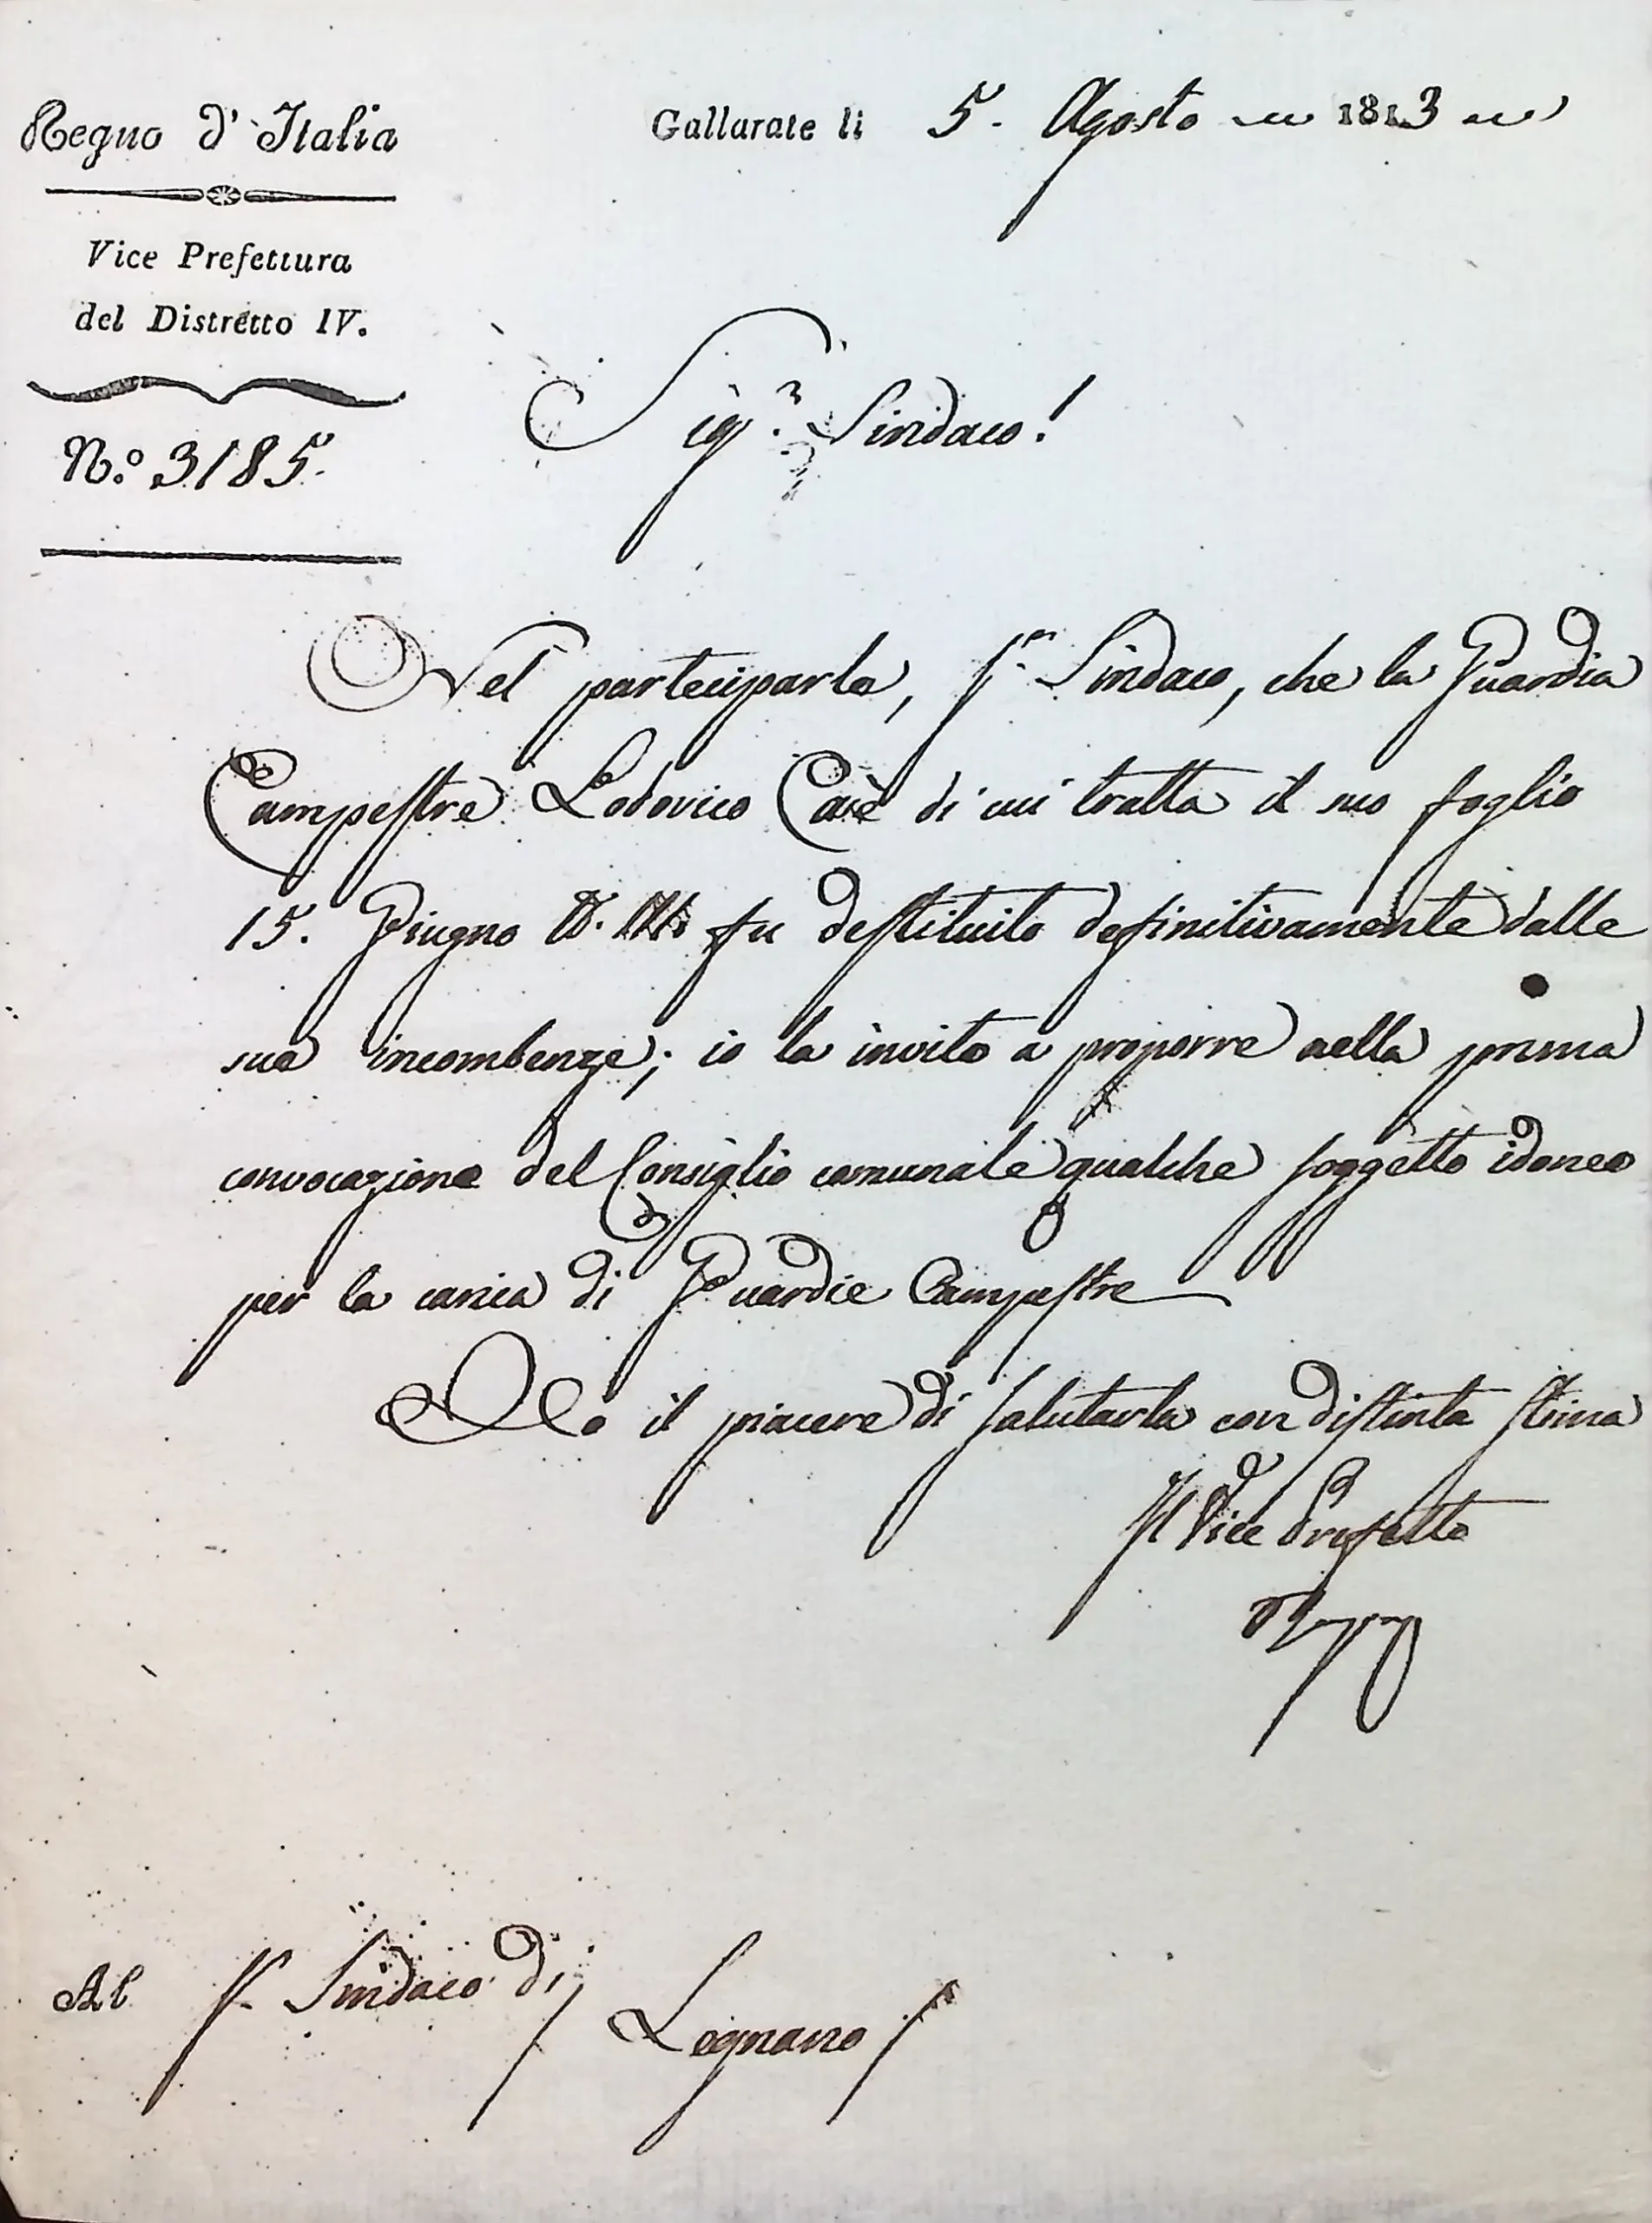 Regno d'Italia
Vice Prefettura
del Distretto IV.
N.º 3185.
Gallarate li 5. Agosto 1813
Sig.r Sindaco!
Nel parteciparle, S.r Sindaco, che la Guardia
Campestre Lodovico Cavè di cui tratta il suo foglio
15. Giugno fu destituito definitivamente dalle
sue incombenze; io la invito a proporre nella prima
convocazione del Consiglio comunale qualche soggetto idoneo
per la carica di Guardie Campestre
Ho il piacere di salutarla con distinta stima
Il Vice Prefetto
Al S.r Sindaco di
Legnano